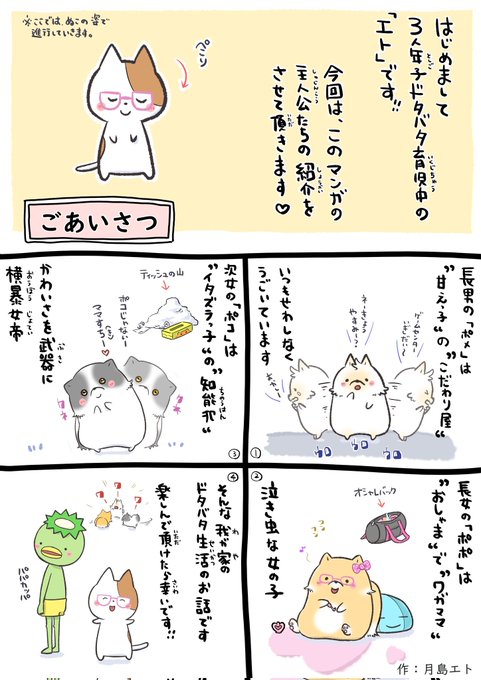 ※ここでは、ぬこの姿で
進行していきます。
ぺこり
はじめまして
3人年子ドタバタ育児中の
「エト」です!!
今回は、このマンガの
主人公たちの紹介を
させて頂きます♡
ごあいさつ
長男の「ポメ」は
"甘えっ子"の"こだわり屋"
いつもせわしなく
うごいています
ゲームセンター
いきたい〜
①
長女の「ポポ」は
"おしゃま"で"ワガママ"
泣き虫な女の子
オシャレバック
②
次女の「ポコ」は
"イタズラっ子"の"知能犯"
かわいさを武器に
横暴女帝
ティッシュの山
ポコじゃないー
ママすきー
③
そんな我が家の
ドタバタ生活のお話です
楽しんで頂けたら幸いです!!
パパカッパ
④
作:月島エト